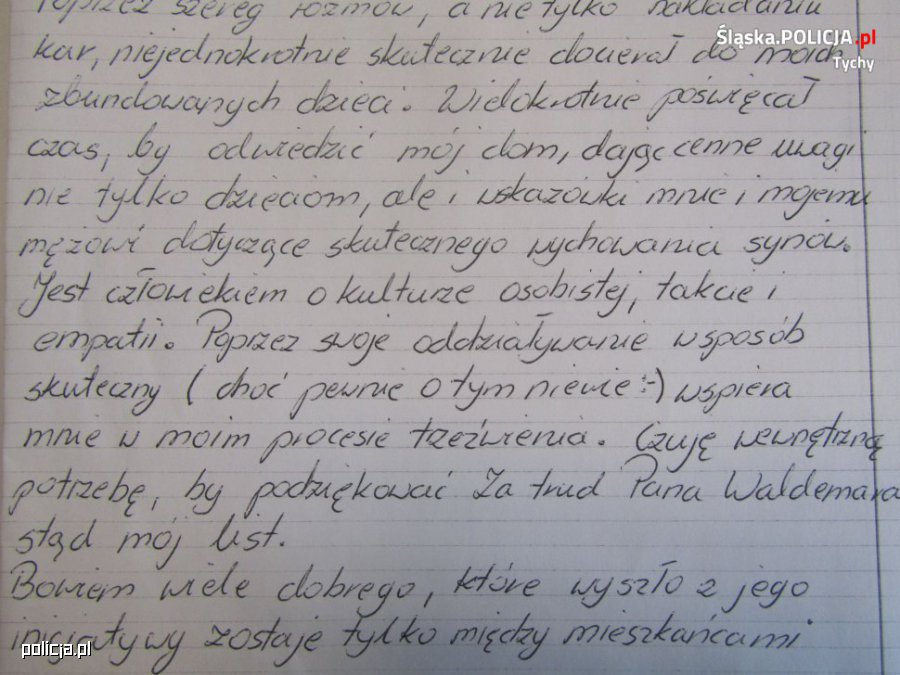 poprzez szereg rozmów, a nie tylko nakładaniu
Śląska.POLICJA.pl
Tychy
kar, niejednokrotnie skutecznie docierał do moich
zbuntowanych dzieci. Wielokrotnie poświęcał
czas, by odwiedzić mój dom, dając cenne uwagi
nie tylko dzieciom, ale i wskazówki mnie i mojemu
mężowi dotyczące skutecznego wychowania synów.
Jest człowiekiem o kulturze osobistej, takcie i
empatii. Poprzez swoje oddziaływanie w sposób
skuteczny (choć pewnie o tym nie wie :-) wspiera
mnie w moim procesie trzeźwienia. Czuję wewnętrzną
potrzebę, by podziękować za trud Pana Waldemara
stąd mój list.
Bowiem wiele dobrego, które wyszło z jego
inicjatywy zostaje tylko między mieszkańcami
policja.pl